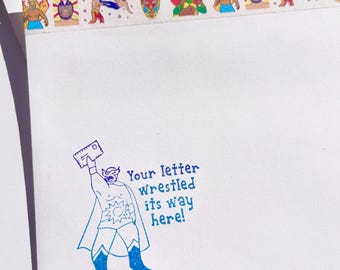 Your letter
wrestled
its way
here!